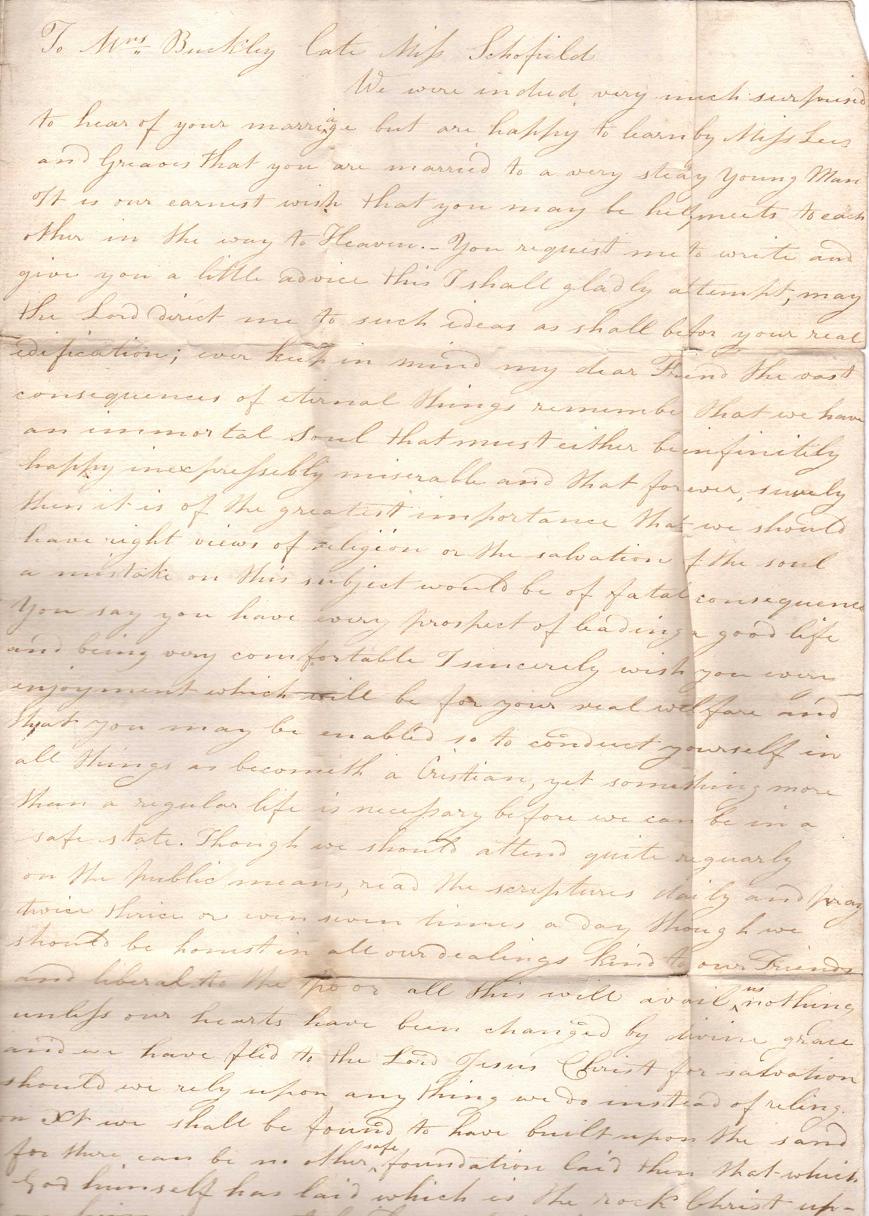 To Mrs Buckley late Miss Schofield
We were indeed very much surprised
to hear of your marriage but are happy to learn by Miss Lees
and Greaves that you are married to a very steay Young Man
It is our earnest wish that you may be helpmeets to each
other in the way to Heaven. - You request me to write and
give you a little advice this I shall gladly attempt, may
the Lord direct me to such ideas as shall be for your real
edification; ever keep in mind my dear Friend the vast
consequences of eternal things remembe that we have
an immortal Soul that must either be infinitely
happy inexpressebly miserable and that forever, surely
then it is of the greatest importance that we should
have right views of religion or the salvation of the soul
a mistake on this subject would be of fatal consequence
You say you have every prospect of leading a good life
and being very comfortable I sincerely wish you every
enjoyment which will be for your real welfare and
that you may be enabled so to conduct yourself in
all things as becometh a Cristian, yet something more
than a regular life is necessary before we can be in a
safe state. Though we should attend quite reguarly
on the public means, read the scriptures daily and pray
twice thrice or even seven times a day though we
should be honest in all our dealings kind to our Friends
and liberal to the poor all this will avail us nothing
unless our hearts have been changed by divine grace
and we have fled to the Lord Jesus Christ for salvation
should we rely upon any thing we do instead of reling
on Xt we shall be found to have built upon the sand
for there can be no other safe foundation laid then that which
God himself has laid which is the rock Christ up-